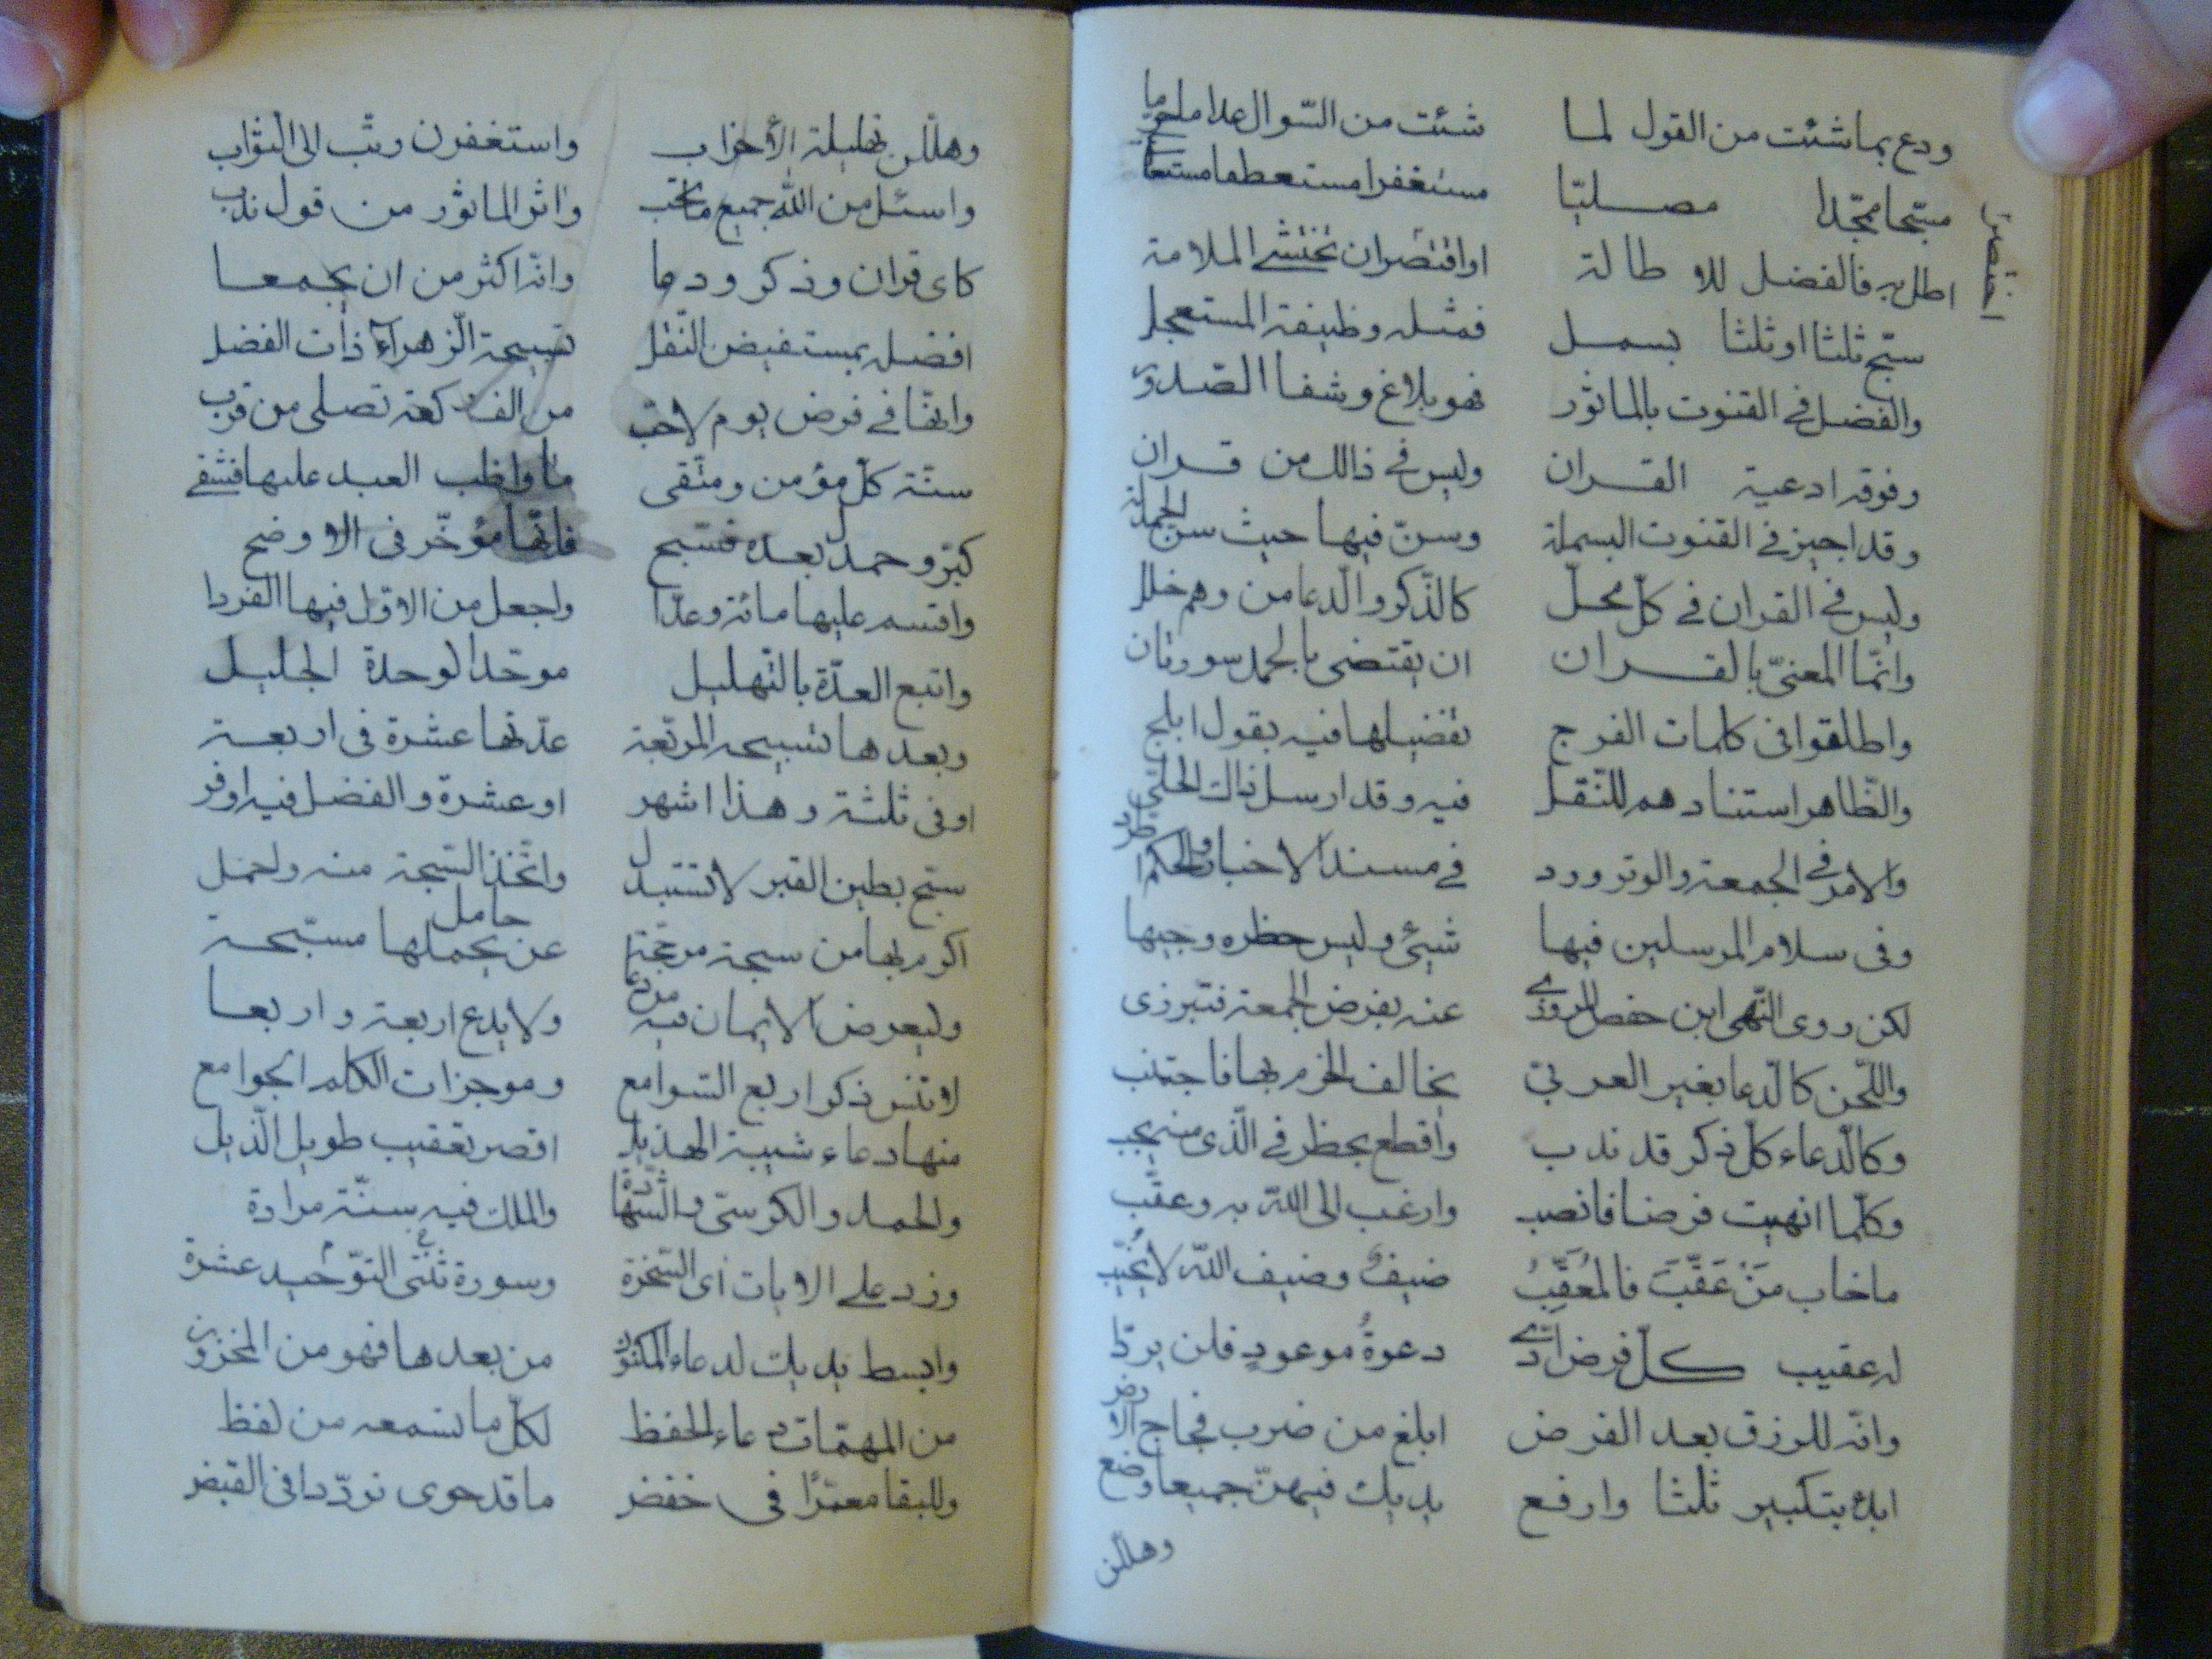 ودع بما شئت من القول لما شئت من السؤال علاما
مسبحا ممجدا مصليا مستغفرا مستعطفا
اختصرن
اطل به فالفضل للاطالة او اقتصر ان تختشى الملامة
سبح ثلثا او ثلثا بسمل فمثله وظيفة المستعجل
والفضل فى القنوت بالماثور فهو بلاغ وشفا الصدور
وفوقه ادعية القران وليس فى ذالك من قران
وقد اجيز فى القنوت البسملة وسن فيها حيث سن الحمدلة
وليس فى القران فى كل محل كالذكر والدعا من وهم خلل
وانما المعنى بالقران ان يقتضى بالحمد سورتان
واطلقوا فى كلمات الفرج تفضيلها فيه بقول ابلج
والظاهر استنادهم للنقل فيه وقد ارسل ذاك الحلى
والامر فى الجمعة والوتر ورد فى مسند الاخبار والحكم اطرد
وفى سلام المرسلين فيها شيئ وليس حظره وجيها
لكن روى النهى ابن حفص المروزى عنه بفرض الجمعة فتبرزى
واللحن كالدعا بغير العربى يخالف الحزم بها فاجتنب
وكالدعاء كل ذكر قد ندب واقطع بحظر فى الذى منه يجب
وكلما انهيت فرضا فانصب وارغب الى الله به وعقب
ما خاب مَنْ عَقَّبَ فالمُعَقِّبُ ضيف وضيف الله لا يُخَيّب
له عقيب كل فرض ادى دعوةُ موعودٍ فلن يردا
وانه للرزق بعد الفرض ابلغ من ضرب فجاج الارض
ابدء بتكبير ثلثا وارفع يديك فيهن جميعا وضع
وهللن
وهللن تهليلة الأحزاب واستغفرن وتب الى التواب
واسئل من الله جميع ما تحب واثر الماثور من قول ندب
كاى قران وذكر ودعا وانه اكثر من ان يجمعا
افضله بمستفيض النقل تسبيحة الزهراء ذات الفضل
وانها فى فرض يوم لاحب من الف ركعة تصلى من قرب
سنة كل مؤمن ومتقى ما واظب العبد عليها فشقى
كبر وحمدل بعده فسبح فانها مؤخر فى الاوضح
واقسم عليها مائة وعدا واجعل من الاول فيها الفردا
واتبع العدة بالتهليل موحدا لوحدة الجليل
وبعدها تسبيحه المربعة عدتها عشرة فى اربعة
او فى ثلثة وهذا اشهر او عشرة والفضل فيه اوفر
سبح بطين القبر لا تستبدل واتخذ السبحة منه واحمل
اكرم بها من سبحة مرجحة عن يحملها حامل مسبحة
وليعرض الايمان فيه من دعا ولا يدع اربعة واربعا
لا تنس ذكر اربع السوامع وموجزات الكلم الجوامع
منها دعاء شيبة الهذيل اقصر تعقيب طويل الذيل
والحمد والكرسى والشهادة والملك فيه سنة مرادة
وزد على الايات اى السخرة وسورة ثنتى التوحيد عشرة
وابسط يديك لدعاء المكنون من بعدها فهو من المخزون
من المهمات دعاء الحفظ لكل ما تسمعه من لفظ
وللبقا معمرًا فى خفض ما قد حوى ترددا فى القبض